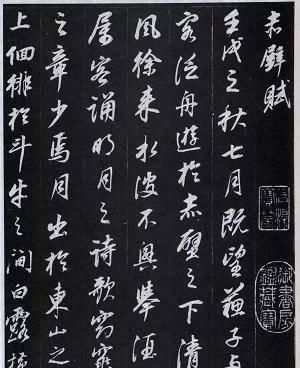 赤壁賦
壬戌之秋七月既望蘇子与
客泛舟遊於赤壁之下清
風徐来水波不興舉酒
属客誦明月之诗歌窈窕
之章少焉月出於東山之
上徊徘於斗牛之間白露横